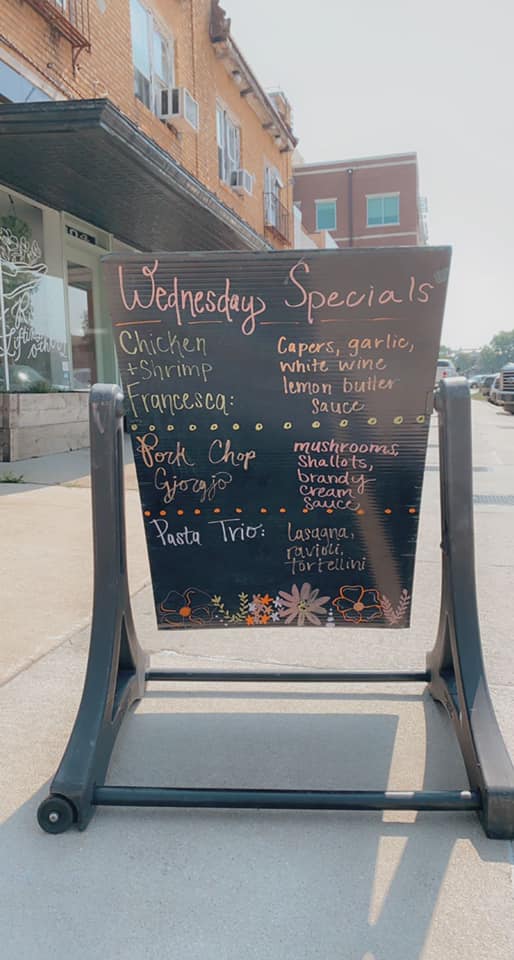 Wednesday Specials
Chicken
+Shrimp
Francesca:
Capers, garlic,
white wine
lemon butter
sauce
Pork Chop
Gjorgjo
mushrooms,
shallots,
brandy
cream
sauce
Pasta Trio:
lasagna,
ravioli,
tortellini